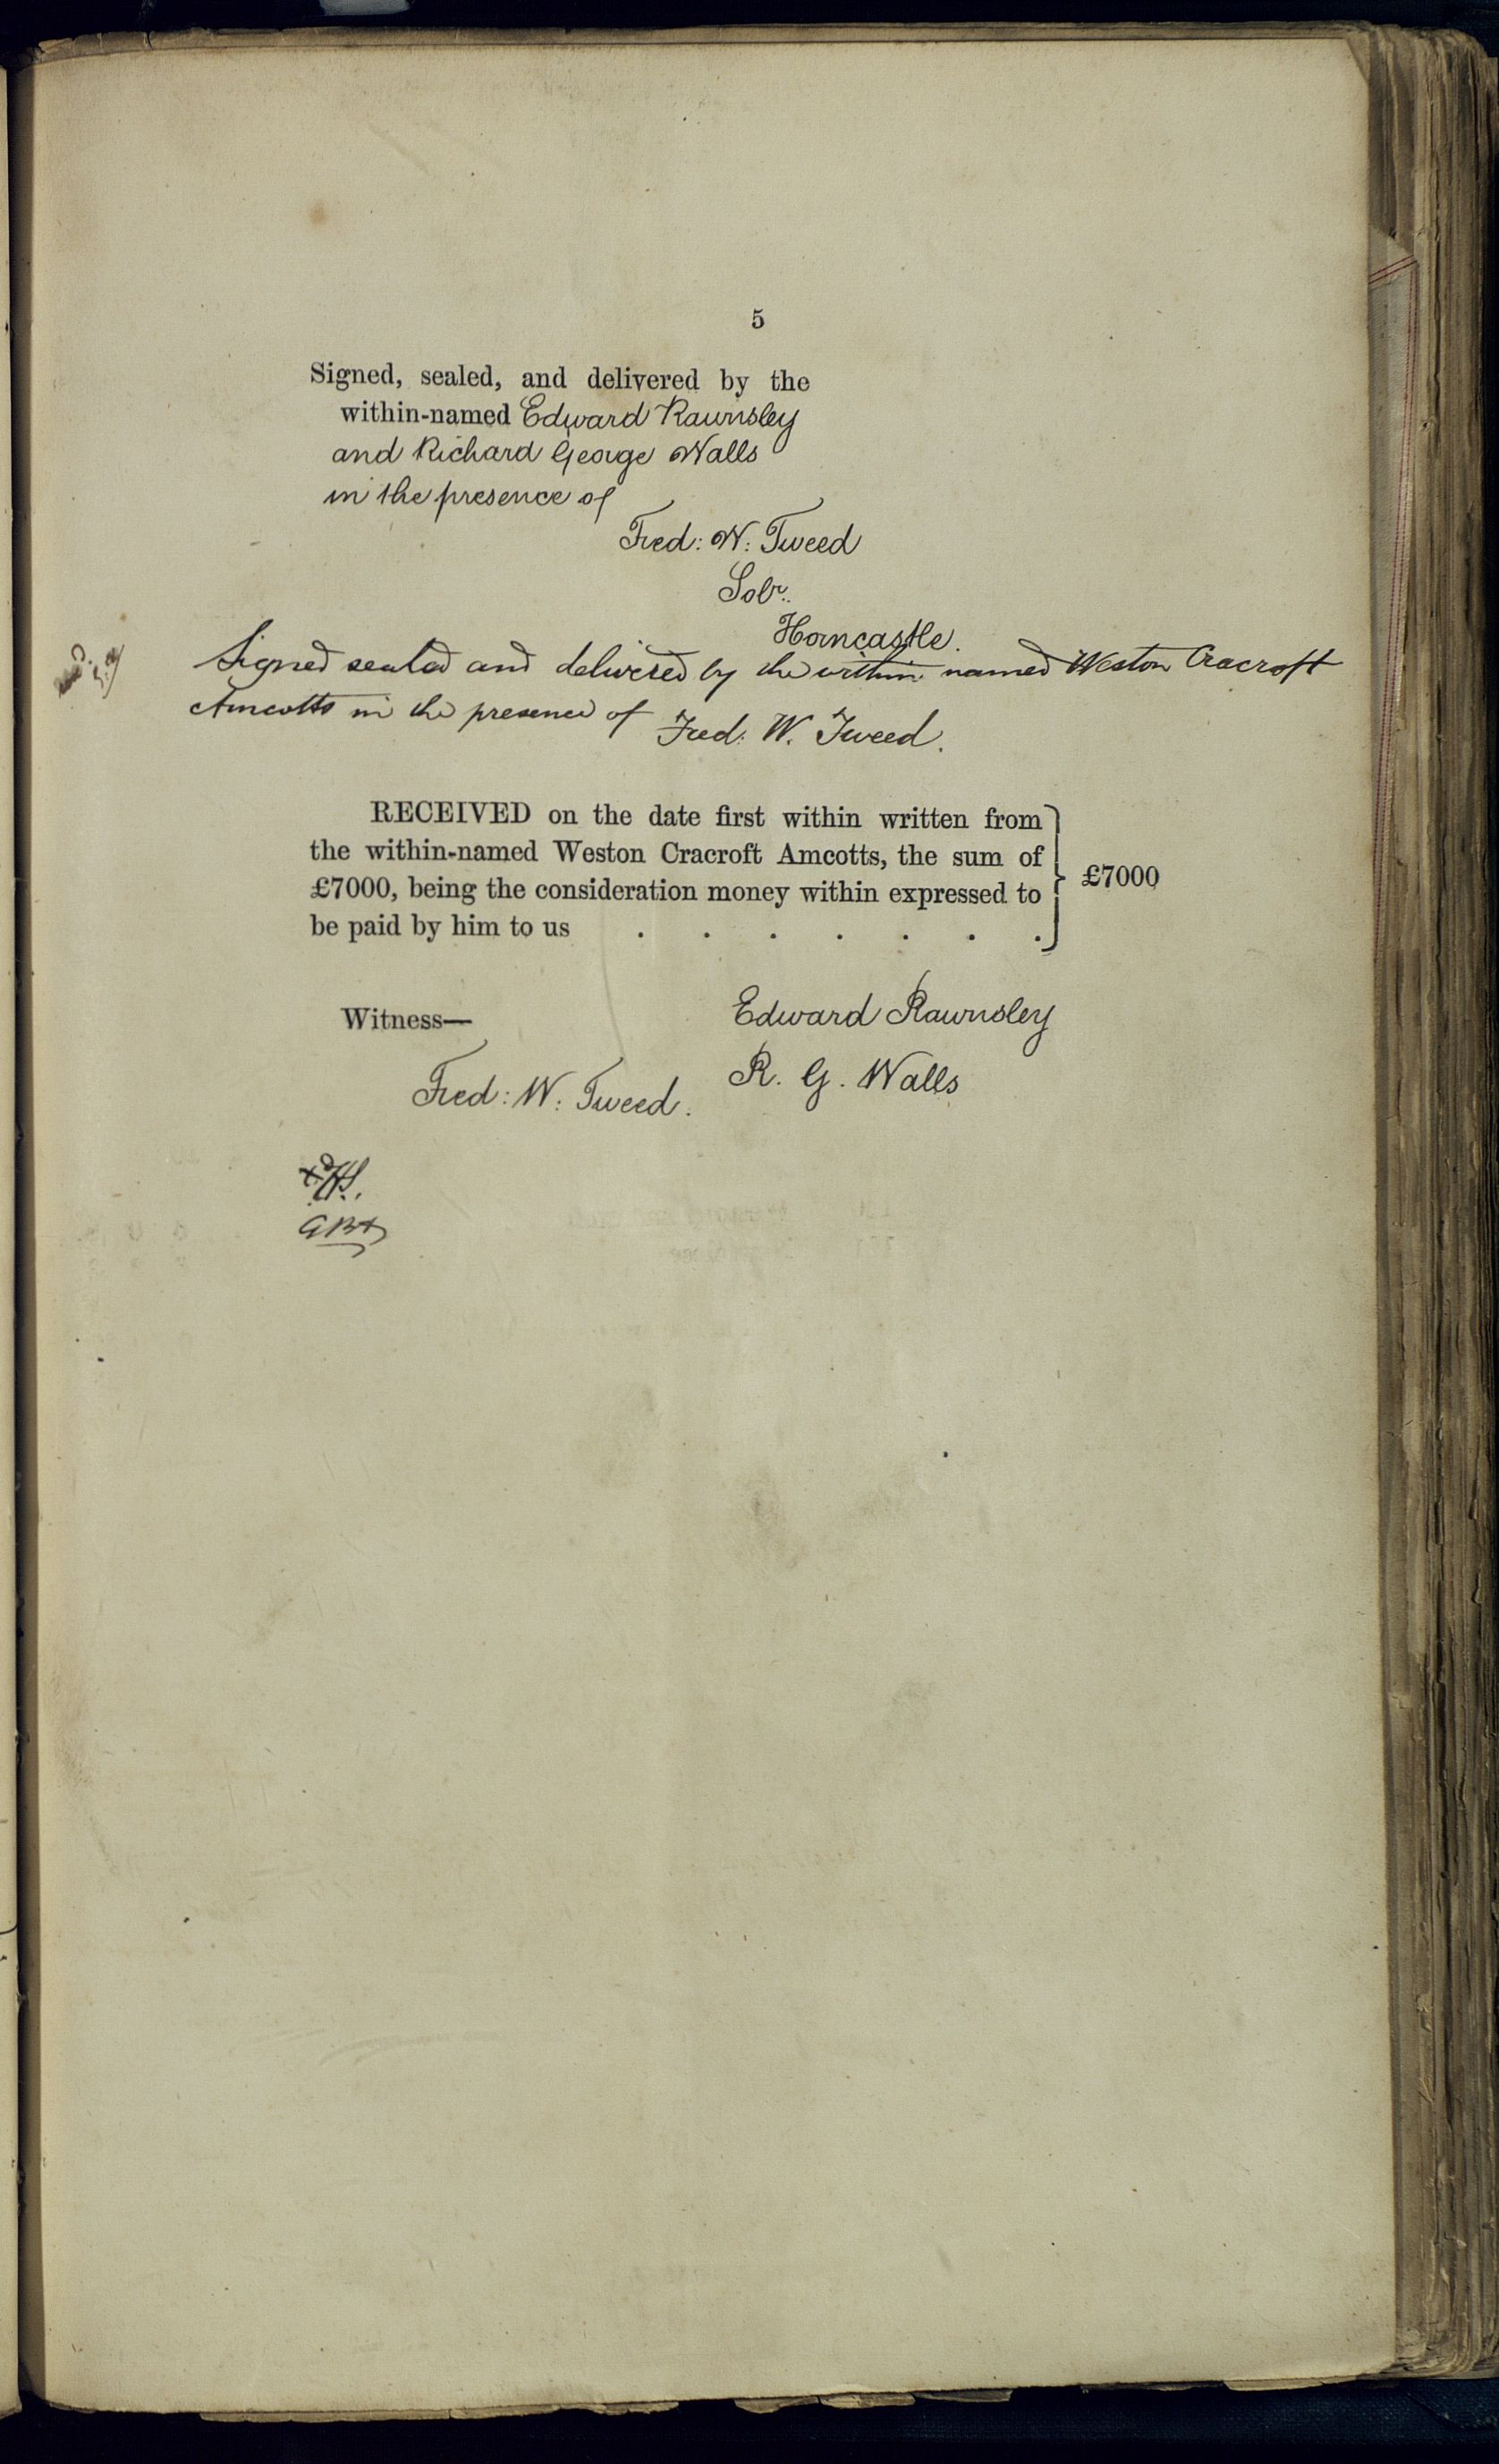 5
Signed, sealed, and delivered by the
within-named Edward Rawnsley
and Richard George Walls
in the presence of
Fred: W: Tweed
Solr.
Horncastle.
Signed sealed and delivered by the within named Weston Cracroft
Amcotts in the presence of Fred: W. Tweed.
RECEIVED on the date first within written from
the within-named Weston Cracroft Amcotts, the sum of
£7000, being the consideration money within expressed to
be paid by him to us . . . . . . .
£7000
Witness—
Edward Rawnsley
Fred: W: Tweed.
R. G. Walls